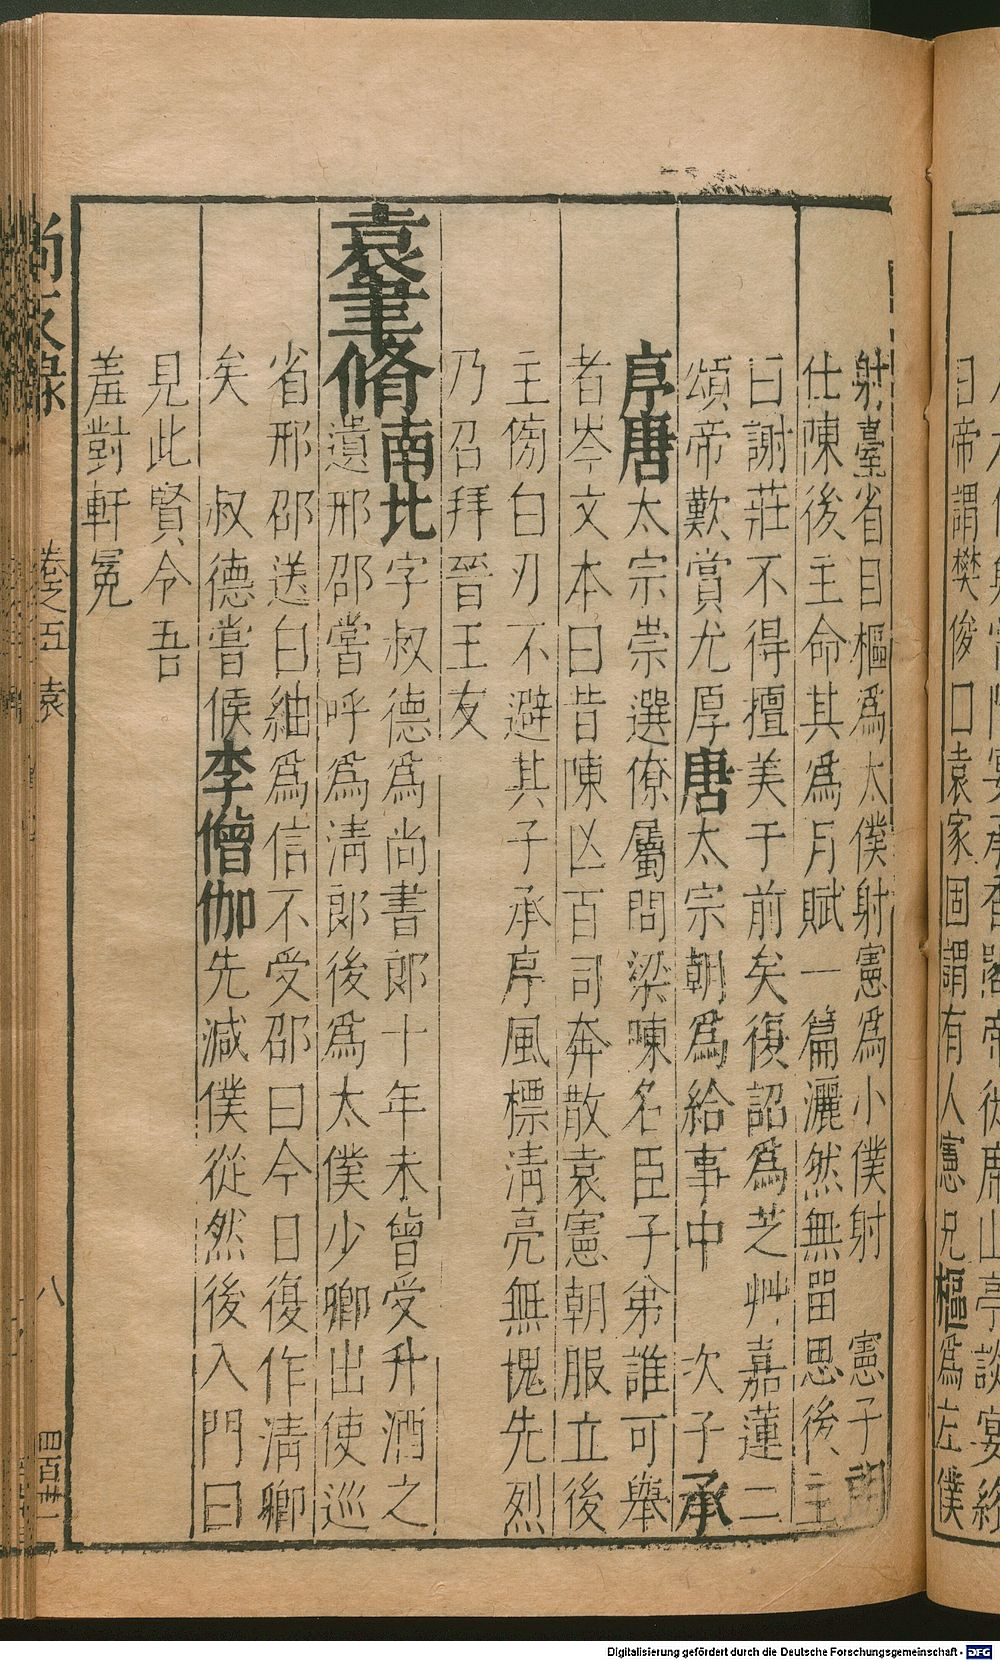 宴承香閣帝徙席山亭談宴終
日帝謂樊俊曰袁家固謂有人憲兄樞爲左僕
射臺省目樞爲太僕射憲爲小僕射 憲子朗
仕陳後主命其爲月賦一篇灑然無畱思後主
曰謝莊不得擅美于前矣復詔爲芝艸嘉蓮二
頌帝歎賞尤厚唐太宗朝爲給事中 次子承
序唐太宗崇選僚屬問梁陳名臣子弟誰可舉
者岑文本曰昔陳凶百司奔散袁憲朝服立後
主傍白刃不避其子承序風標清亮無愧先烈
乃召拜晉王友
袁聿脩南北字叔德爲尚書郎十年未曾受升酒之
遺邢邵嘗呼爲清郎後爲太僕少卿出使巡
省邢邵送白紬爲信不受邵曰今日復作清卿
矣 叔德嘗候李僧伽先減僕從然後入門曰
見此賢令吾
羞對軒冕
尚友錄 卷之五 袁 八 四百
Digitalisierung gefördert durch die Deutsche Forschungsgemeinschaft - DFG